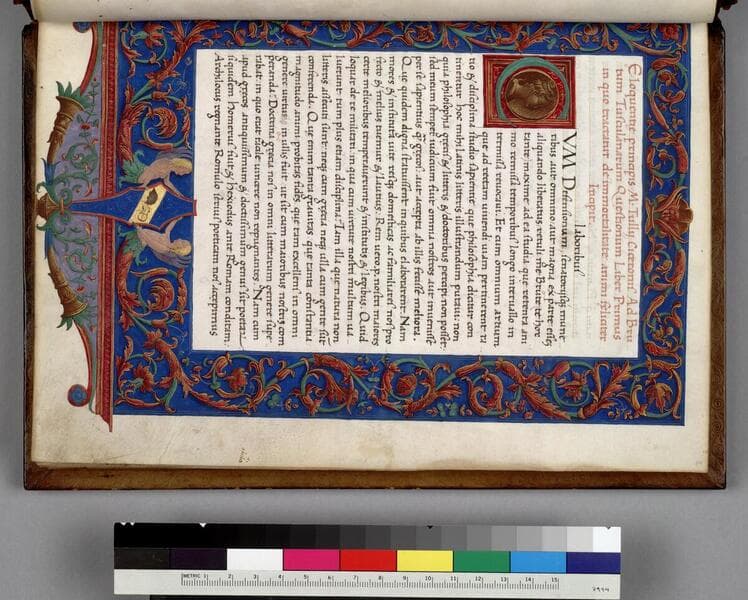 Eloquentie princeps M. Tullii Ciceronis Ad Bru
tum Tusculanarum Questionum Liber Primus
in quo tractatur de immortalitate animi feliciter
Incipit.
laboribus
CVM Defensionum, senatoriisq; mune
ribus aut omnino aut magna ex parte essē
aliquando liberatus, retuli me Brute te hor
tante maxime ad ea studia que retenta ani
mo remissa temporibus longo intervallo in
termissa revocavi. Et cum omnium artium
que ad rectam vivendi viam pertinerent ra
tio & disciplina studio sapientie que philosophia dicitur con
tineretur hoc mihi latinis litteris illustrandum putavi: non
quia philosophia grecis & litteris & doctoribus percipi non posset:
sed meum semper iudicium fuit omnia nostros aut invenisse
per se sapientius q̃ grecos: aut accepta ab illis fecisse meliora:
Que quidem digna statuissent in quibus elaborarent. Nam
mores & instituta vite resq; domesticas ac familiares nos pro
fecto & melius tuemur & lautius. Rem vero p. nostri maiores
certe melioribus temperaverunt & institutis & legibus. Quid
loquar de re militari: in qua cum virtute nostri multum va
luerunt: tum plus etiam disciplina: Iam illa que natura non
litteris assecuti sunt: neq; cum grecia neq; ulla cum gente sunt
conferenda. Que enim tanta gravitas que tanta constantia
magnitudo animi probitas fides que tam excellens in omni
genere virtus in ullis fuit ut sit cum maioribus nostris com
paranda: Doctrina grecia nos in omni litterarum genere supe
rabat. in quo erat facile vincere non repugnantes. Nam cum
apud grecos antiquissimum & doctissimum genus sit poetarum
siquidem homerus fuit & hesiodus ante Romam conditam:
Archilocus regnante Romulo serius poeticam nos accepimus
METRIC 1 2 3 4 5 6 7 8 9 10 11 12 13 14 15